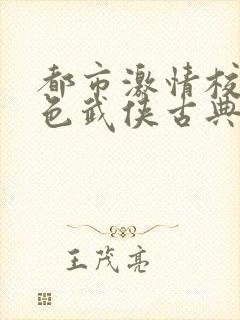 都市激情校
色武侠古典
王茂亮